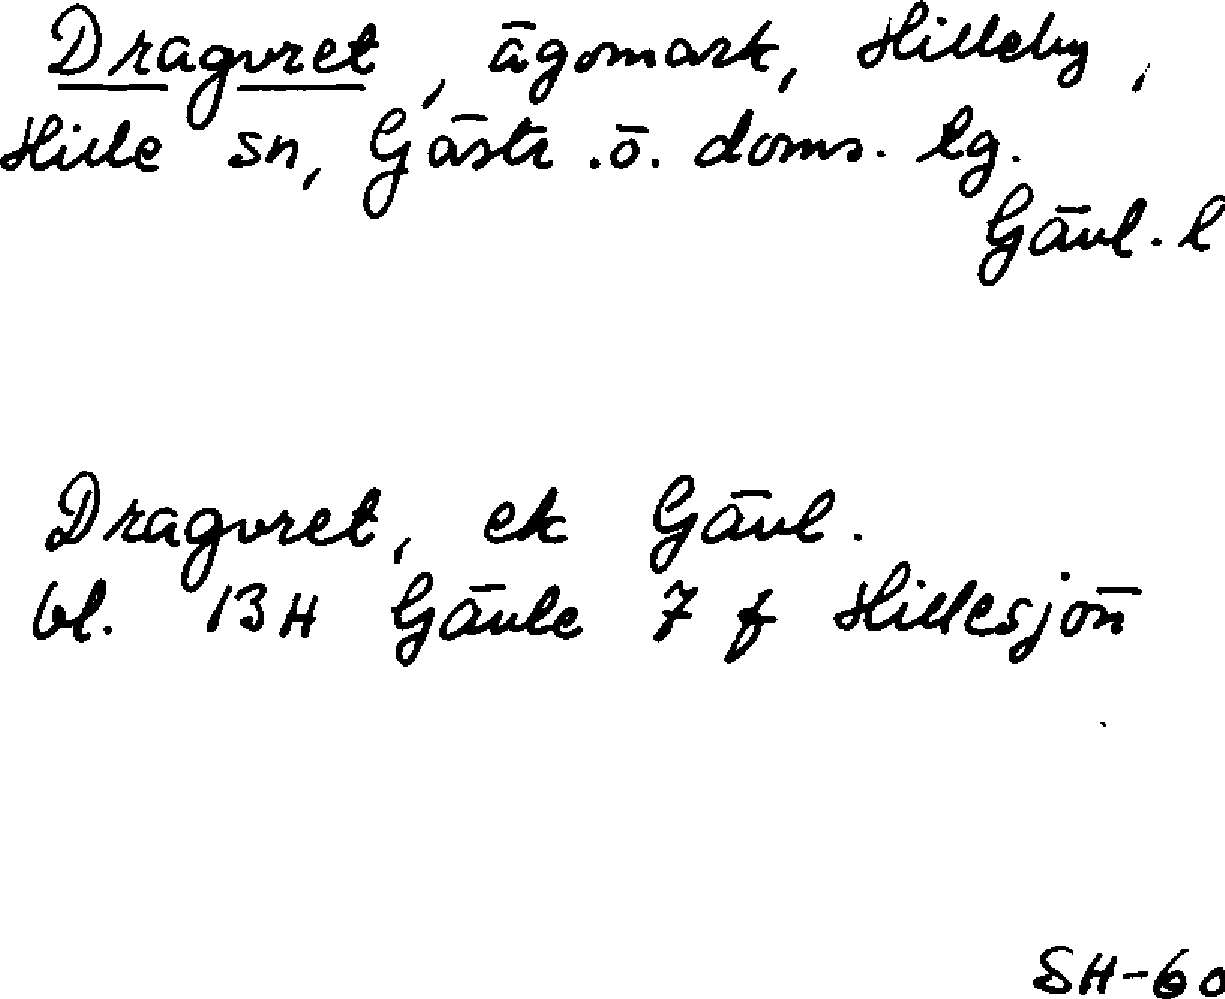 Dragvret, ägomark, Hilleby,
Hille sn, Gästr. ö. doms. lg.
Gävl. l
Dragvret, ek Gävl.
bl. 13H Gävle 7 f Hillesjön
SH-60